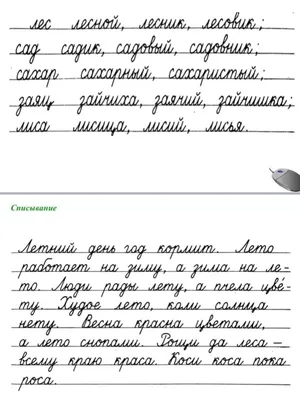 лес лесной, лесник, лесовик;
сад садик, садовый, садовник;
сахар сахарный, сахаристый;
заяц зайчиха, заячий, зайчишка;
лиса лисица, лисий, лисья.
Списывание
Летний день год кормит. Лето
работает на зиму, а зима на ле-
то. Люди рады лету, а пчела цве́-
ту. Худое лето, коли солнца
нету. Весна красна цветами,
а лето снопами. Рощи да леса –
всему краю краса. Коси коса пока
роса.